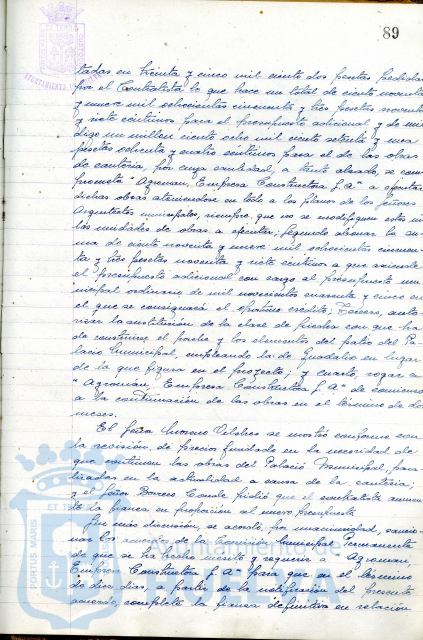 89
tadas en treinta y cinco mil ciento dos pesetas pedidas
por el Contratista lo que hace un total de ciento noventa
y nueve mil ochocientas cincuenta y tres pesetas noventa
y siete céntimos para el presupuesto adicional y de mil
digo un millon ciento ocho mil ciento setenta y una
pesetas ochenta y cuatro céntimos para el de las obras
de cantería, por cuya cantidad, a tanto alzado, se com
promete "Agroman, Empresa Constructora S.A." a ejecutar
dichas obras ateniendose en todo a los planos de los señores
Arquitectos municipales, siempre que no se modifiquen estos ni
las unidades de obras a ejecutar; Segundo abonar la su
ma de ciento noventa y nueve mil ochocientas cincuen
ta y tres pesetas noventa y siete céntimos a que asciende
el presupuesto adicional con cargo al presupuesto mu
nicipal ordinario de mil novecientos cuarenta y cinco en
el que se consignará el oportuno crédito; Tercero, auto
rizar la sustitución de la clase de piedra con que ha
de construirse el porche y los elementos del patio del Pa
lacio Municipal, empleando la de Guadalix en lugar
de la que figura en el proyecto; y cuarto, rogar a
"Agroman, Empresa Constructora S.A." de comienzo
a la continuación de las obras en el término de dos
meses.
El Señor Moreno Vilches se mostró conforme con
la revisión de precios fundada en la necesidad de
que continuen las obras del Palacio Municipal, para
lizadas en la actualidad a causa de la cantería;
y el Señor Borrero Conde pidió que el contratista aumen
te la fianza en proporción al nuevo presupuesto.
Sin más discusión, se acordó, por unanimidad, sancio
nar los acuerdos de la Comisión Municipal Permanente
de que se ha hecho mérito y requerir a "Agroman,
Empresa Constructora S.A." para que en el término
de diez días, a partir de la notificación del presente
acuerdo, complete la fianza definitiva en relación
PORTUS MARIS
Ayuntamiento de
HUELVA